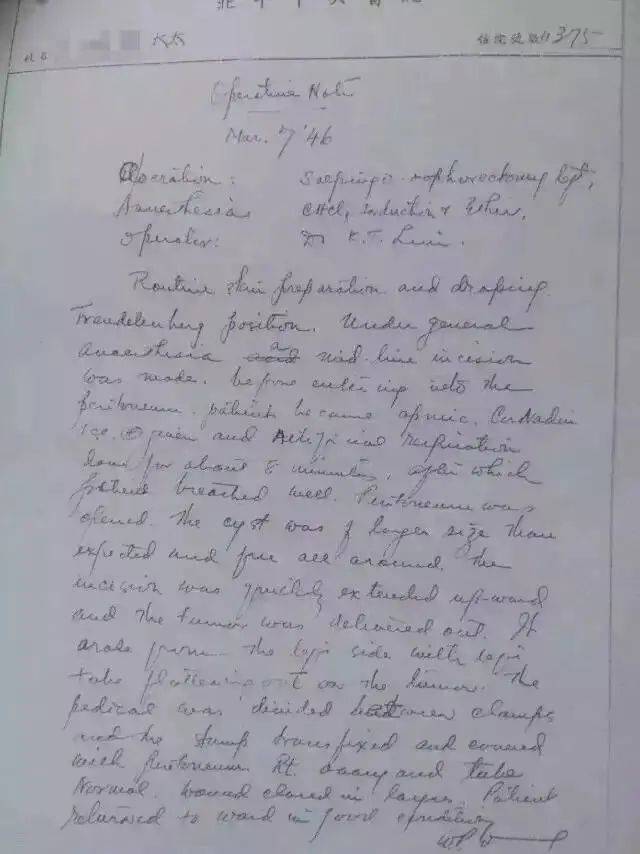 太太 住院號數 375
Operative Note
Mar. 7 '46
Operation: Salpingo-oophorectomy left.
Anaesthesia CHCl3 induction & Ether.
Operator: Dr K.T.
Routine skin preparation and draping.
Trendelenberg position. Under general
anaesthesia a mid-line incision
was made. before entering into the
peritoneum. patient became apnic.
1cc. given and Artificial respiration
done for about 8 minutes, after which
patient breathed well. Peritoneum was
opened. The cyst was of larger size than
expected and free all around. The
incision was quickly extended upward
and the tumor was delivered out. It
arose from the left side with left
tube flattening out on the tumor. The
pedical was divided between clamps
and the stump transfixed and covered
with peritoneum. Rt. ovary and tube
Normal. Wound closed in layers. Patient
returned to ward in good condition